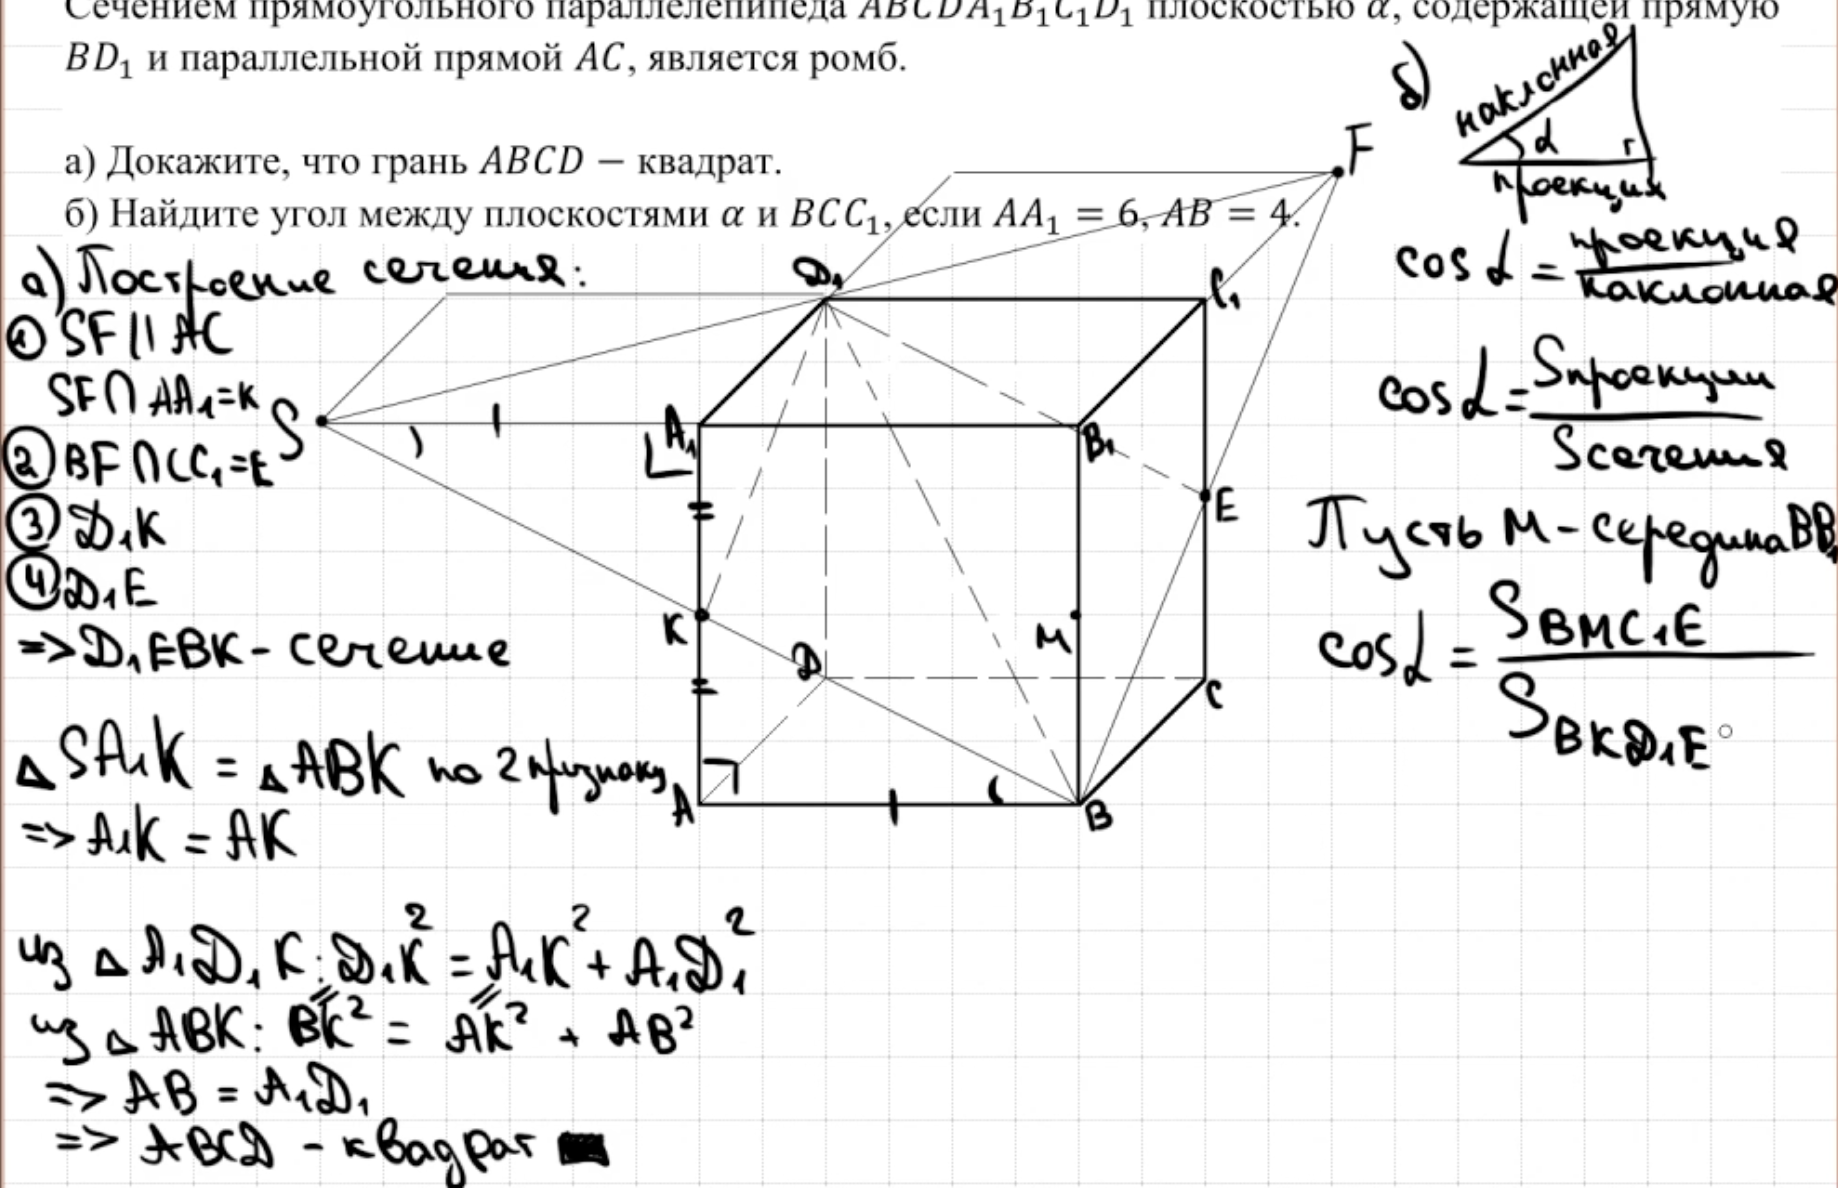 Сечением прямоугольного параллелепипеда ABCDA₁B₁C₁D₁ плоскостью α, содержащей прямую
BD₁ и параллельной прямой AC, является ромб.
а) Докажите, что грань ABCD − квадрат.
б) Найдите угол между плоскостями α и BCC₁, если AA₁ = 6, AB = 4.
а) Построение сечения:
① SF || AC
SF ∩ AA₁ = K
② BF ∩ CC₁ = E
③ D₁K
④ D₁E
=> D₁EBK - сечение
△ SA₁K = △ ABK по 2 признаку
=> A₁K = AK
из △ A₁D₁K: D₁K² = A₁K² + A₁D₁²
из △ ABK: BK² = AK² + AB²
=> AB = A₁D₁
=> ABCD - квадрат
S
F
D₁
C₁
A₁
B₁
E
K
M
D
C
A
B
б)
наклонная
α
проекция
cos α = проекция / наклонная
cos α = Sпроекции / Sсечения
Пусть M - середина BB₁
cos α = S BMC₁E / S BKD₁E